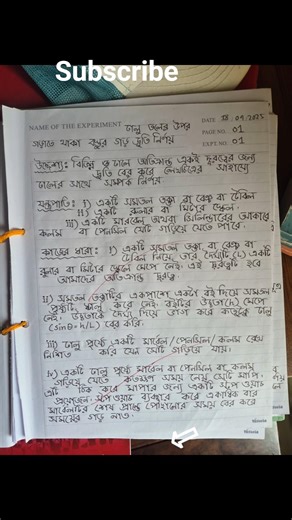 Subscribe
NAME OF THE EXPERIMENT ঢালু তলের উপর
DATE 18.09.2025
গড়াতে থাকা বস্তুর গড় দ্রুতি নির্ণয়
PAGE NO. 01
EXPT. NO. 01
উদ্দেশ্য: বিভিন্ন ঢালে অতিক্রান্ত একই দূরত্বের জন্য
দ্রুতি বের করে লেখচিত্রের সাহায্যে
ঢালের সাথে সম্পর্ক নির্ণয়
যন্ত্রপাতি: i) একটি সমতল তক্তা বা বেঞ্চ বা টেবিল
ii) একটি রুলার বা মিটার স্কেল।
iii) একটি মারবেল অথবা সিলিন্ডারের আকারের
কলম বা পেনসিল যেটি গড়িয়ে যেতে পারে।
কাজের ধারা: i) একটি সমতল তক্তা বা বেঞ্চ বা
টেবিল নিয়ে তার দৈর্ঘ্যটি (L) একটি
রুলার বা মিটার স্কেলে মেপে নেই, এই দূরত্বটি হবে
আমাদের অতিক্রান্ত দূরত্ব
ii) সমতল তক্তাটির একপাশে একটা বই দিয়ে সমতল
পৃষ্ঠটি ঢালু করে নেই। বইটির উচ্চতা (h) মেপে
নেই, উচ্চতাকে দৈর্ঘ্য দিয়ে ভাগ করে কতটুকু ঢালু
(sinθ = h/L) বের করি।
iii) ঢালু পৃষ্ঠে একটি মার্বেল /পেনসিল/ কলম রেখে
নিশ্চিত করি যেন সেটি গড়িয়ে যায়।
iv) একটি ঢালু পৃষ্ঠে মার্বেল বা পেনসিল বা কলম
গড়িয়ে যেতে কতক্ষণ সময় নেয় সেটি মাপি,
এটি ঠিক করে মাপার জন্য একটি স্টপ ওয়াচ
প্রয়োজন। স্টপ ওয়াচ ব্যবহার করে একাধিক বার
মারবেলটির শেষ প্রান্তে পৌছানোর সময় বের করে
সময়ের গড় নাও।